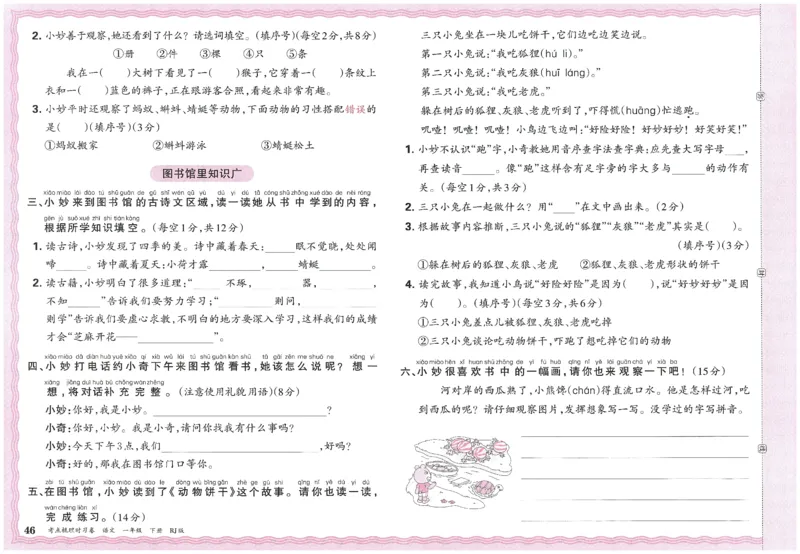 2. 小妙善于观察,她还看到了什么？请选词填空。(填序号)(每空2分,共8分)
①册 ②件 ③棵 ④只 ⑤条
我在一( )大树下看见了一( )猴子,它穿着一( )条纹上
衣和一( )蓝色的裤子,正在跟游客合照,看起来非常有趣。
3. 小妙平时还观察了蚂蚁、蝌蚪、蜻蜓等动物,下面动物的习性搭配错误的
是( )(填序号)(3分)
①蚂蚁搬家 ②蝌蚪游泳 ③蜻蜓松土
图书馆里知识广
三、小妙来到图书馆的古诗文区域,读一读她从书中学到的内容,
根据所学知识填空。(每空1分,共12分)
1. 读古诗,小妙发现了四季的美。诗中藏着春天:____眠不觉晓,处处闻
啼____。诗中藏着夏天:小荷才露____,____蜻蜓____。
2. 读古籍,小妙明白了很多道理:“____不琢,____器,____,
不知____”告诉我们要努力学习;“____则问,____
则学”告诉我们要虚心求教,不明白的地方要深入学习,这样我们的成绩
才会“芝麻开花——____”。
四、小妙打电话约小奇下午来图书馆看书,她该怎么说呢？想一
想,将对话补充完整。(注意使用礼貌用语)(8分)
小妙:你好,我是小妙。____?
小奇:你好,小妙。我是小奇,请问你找我有什么事吗?
小妙:今天下午3点,我们____,好吗?
小奇:好的,那我在图书馆门口等你。
五、在图书馆,小妙读到了《动物饼干》这个故事。请你也读一读,
完成练习。(14分)
46 考点梳理时习卷 语文 一年级 下册 RJ版
三只小兔坐在一块儿吃饼干,它们边吃边笑边说。
第一只小兔说:“我吃狐狸(hú li)。”
第二只小兔说:“我吃灰狼(huī láng)。”
第三只小兔说:“我吃老虎。”
躲在树后的狐狸、灰狼、老虎听到了,吓得慌(huāng)忙逃跑。
叽喳！叽喳！叽喳！小鸟边飞边叫:“好险好险！好妙好妙！好笑好笑！”
1. 小妙不认识“跑”字,小奇教她用音序查字法查字典:应先查大写字母____,
再查读音____。像“跑”这样含有足字旁的字大多与____的动作有
关。(每空1分,共3分)
2. 三只小兔在一起做什么？用“____”在文中画出来。(2分)
3. 根据故事内容推断,三只小兔说的“狐狸”“灰狼”“老虎”其实是( )。
(填序号)(3分)
①躲在树后的狐狸、灰狼、老虎 ②狐狸、灰狼、老虎形状的饼干
4. 读完故事,我知道小鸟说“好险好险”是因为( ),说“好妙好妙”是因
为( )。(填序号)(每空3分,共6分)
①三只小兔差点儿被狐狼、灰狼、老虎吃掉
②三只小兔谈论吃动物饼干,吓跑了想吃掉它们的动物
六、小妙很喜欢书中的一幅画,请你也来观察一下吧！(15分)
河对岸的西瓜熟了,小熊馋(chán)得直流口水。他是怎样过河,吃
到西瓜的呢？请仔细观察图片,发挥想象写一写。没学过的字写拼音。